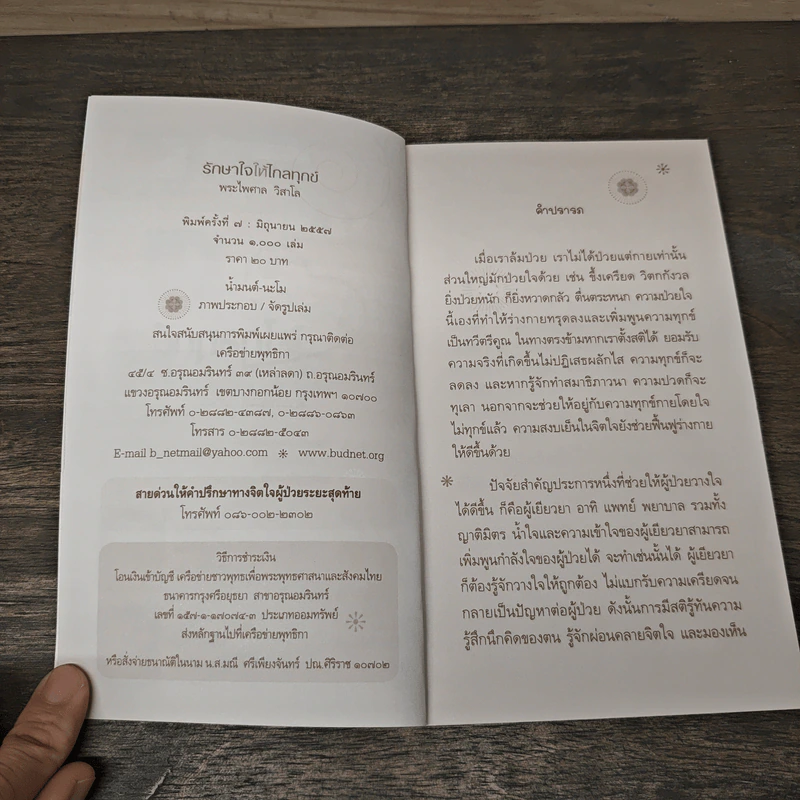 รักษาใจให้ไกลทุกข์
พระไพศาล วิสาโล
พิมพ์ครั้งที่ ๗ : มิถุนายน ๒๕๕๗
จำนวน ๑,๐๐๐ เล่ม
ราคา ๒๐ บาท
น้ำมนต์-นะโม
ภาพประกอบ / จัดรูปเล่ม
สนใจสนับสนุนการพิมพ์เผยแพร่ กรุณาติดต่อ
เครือข่ายพุทธิกา
๔๕/๔ ซ.อรุณอมรินทร์ ๓๙ (เหล่าลดา) ถ.อรุณอมรินทร์
แขวงอรุณอมรินทร์ เขตบางกอกน้อย กรุงเทพฯ ๑๐๗๐๐
โทรศัพท์ ๐-๒๘๘๒-๔๓๘๗, ๐-๒๘๘๖-๐๘๖๓
โทรสาร ๐-๒๘๘๒-๕๐๔๓
E-mail b_netmail@yahoo.com ❋ www.budnet.org
สายด่วนให้คำปรึกษาทางจิตใจผู้ป่วยระยะสุดท้าย
โทรศัพท์ ๐๘๖-๐๐๒-๒๓๐๒
วิธีการชำระเงิน
โอนเงินเข้าบัญชี เครือข่ายชาวพุทธเพื่อพระพุทธศาสนาและสังคมไทย
ธนาคารกรุงศรีอยุธยา สาขาอรุณอมรินทร์
เลขที่ ๑๕๗-๑-๑๗๐๗๔-๓ ประเภทออมทรัพย์
ส่งหลักฐานไปที่เครือข่ายพุทธิกา
หรือสั่งจ่ายธนาณัติในนาม น.ส.มณี ศรีเพียงจันทร์ ปณ.ศิริราช ๑๐๗๐๒
คำปรารภ
เมื่อเราล้มป่วย เราไม่ได้ป่วยแต่กายเท่านั้น
ส่วนใหญ่มักป่วยใจด้วย เช่น ซึ้งเครียด วิตกกังวล
ยิ่งป่วยหนัก ก็ยิ่งหวาดกลัว ตื่นตระหนก ความป่วยใจ
นี้เองที่ทำให้ร่างกายทรุดลงและเพิ่มพูนความทุกข์
เป็นทวีตรีคูณ ในทางตรงข้ามหากเราตั้งสติได้ ยอมรับ
ความจริงที่เกิดขึ้นไม่ปฏิเสธผลักไส ความทุกข์ก็จะ
ลดลง และหากรู้จักทำสมาธิภาวนา ความปวดก็จะ
ทุเลา นอกจากจะช่วยให้อยู่กับความทุกข์กายโดยใจ
ไม่ทุกข์แล้ว ความสงบเย็นในจิตใจยังช่วยฟื้นฟูร่างกาย
ให้ดีขึ้นด้วย
ปัจจัยสำคัญประการหนึ่งที่ช่วยให้ผู้ป่วยวางใจ
ได้ดีขึ้น ก็คือผู้เยียวยา อาทิ แพทย์ พยาบาล รวมทั้ง
ญาติมิตร น้ำใจและความเข้าใจของผู้เยียวยาสามารถ
เพิ่มพูนกำลังใจของผู้ป่วยได้ จะทำเช่นนั้นได้ ผู้เยียวยา
ก็ต้องรู้จักวางใจให้ถูกต้อง ไม่แบกรับความเครียดจน
กลายเป็นปัญหาต่อผู้ป่วย ดังนั้นการมีสติรู้ทันความ
รู้สึกนึกคิดของตน รู้จักผ่อนคลายจิตใจ และมองเห็น